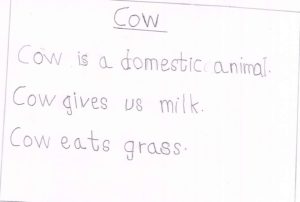 Cow
Cow is a domestic animal.
Cow gives us milk.
Cow eats grass.